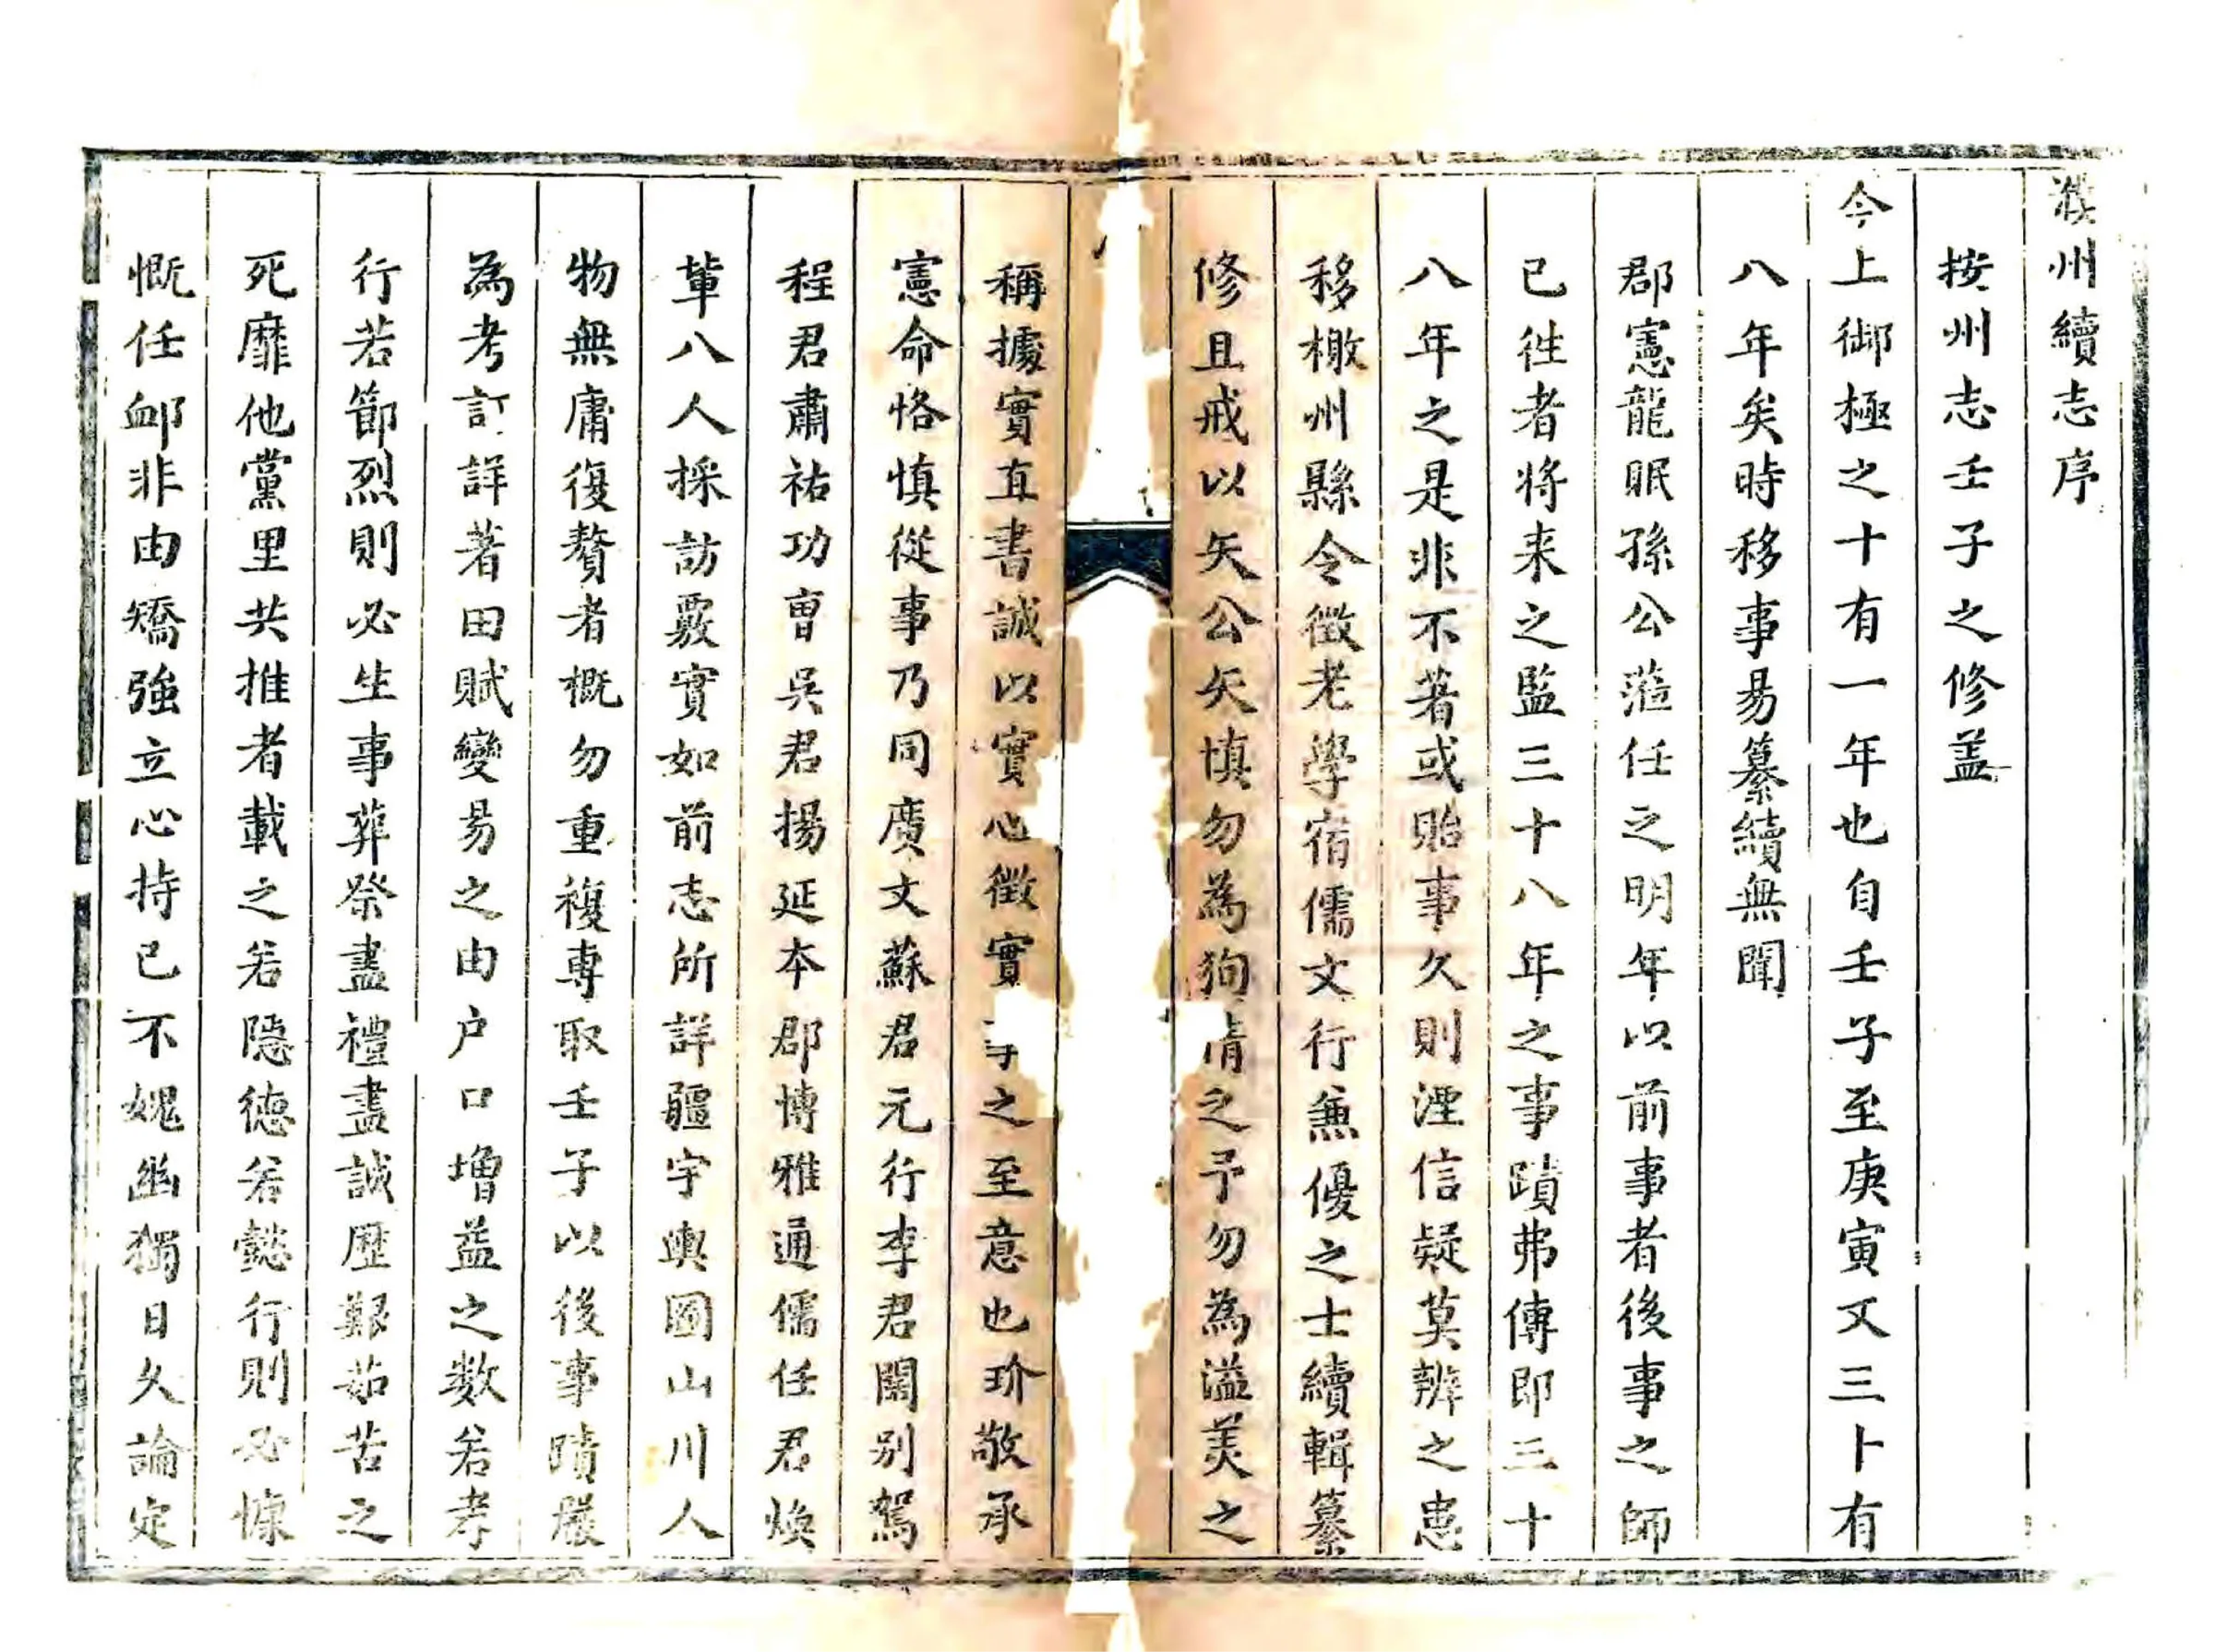 濮州續志序
按州志壬子之修盖
今上御極之十有一年也自壬子至庚寅又三十有
八年矣時移事易纂續無聞
郡憲龍眠孫公蒞任之明年以前事者後事之師
已徃者将来之監三十八年之事蹟弗傳即三十
八年之是非不著或貽事久則湮信疑莫辨之患
移檄州縣令徵老學宿儒文行兼優之士續輯纂
修且戒以矢公矢慎勿為狥情之予勿為溢美之
稱據實直書誠以實心徵實之至意也玠敬承
憲命恪慎從事乃同廣文蘇君元行李君闇别駕
程君肅祐功曺吳君揚延本郡博雅通儒任君煥
軰八人採訪覈實如前志所詳疆宇輿圖山川人
物無庸復贅者概勿重複専取壬子以後事蹟嚴
為考訂詳著田賦變易之由户口増益之数若孝
行若節烈則必生事葬祭盡禮盡誠歷艱茹苦之
死靡他黨里共推者載之若隠德若懿行則必慷
慨任衈非由矯強立心持已不媿幽獨日久論定